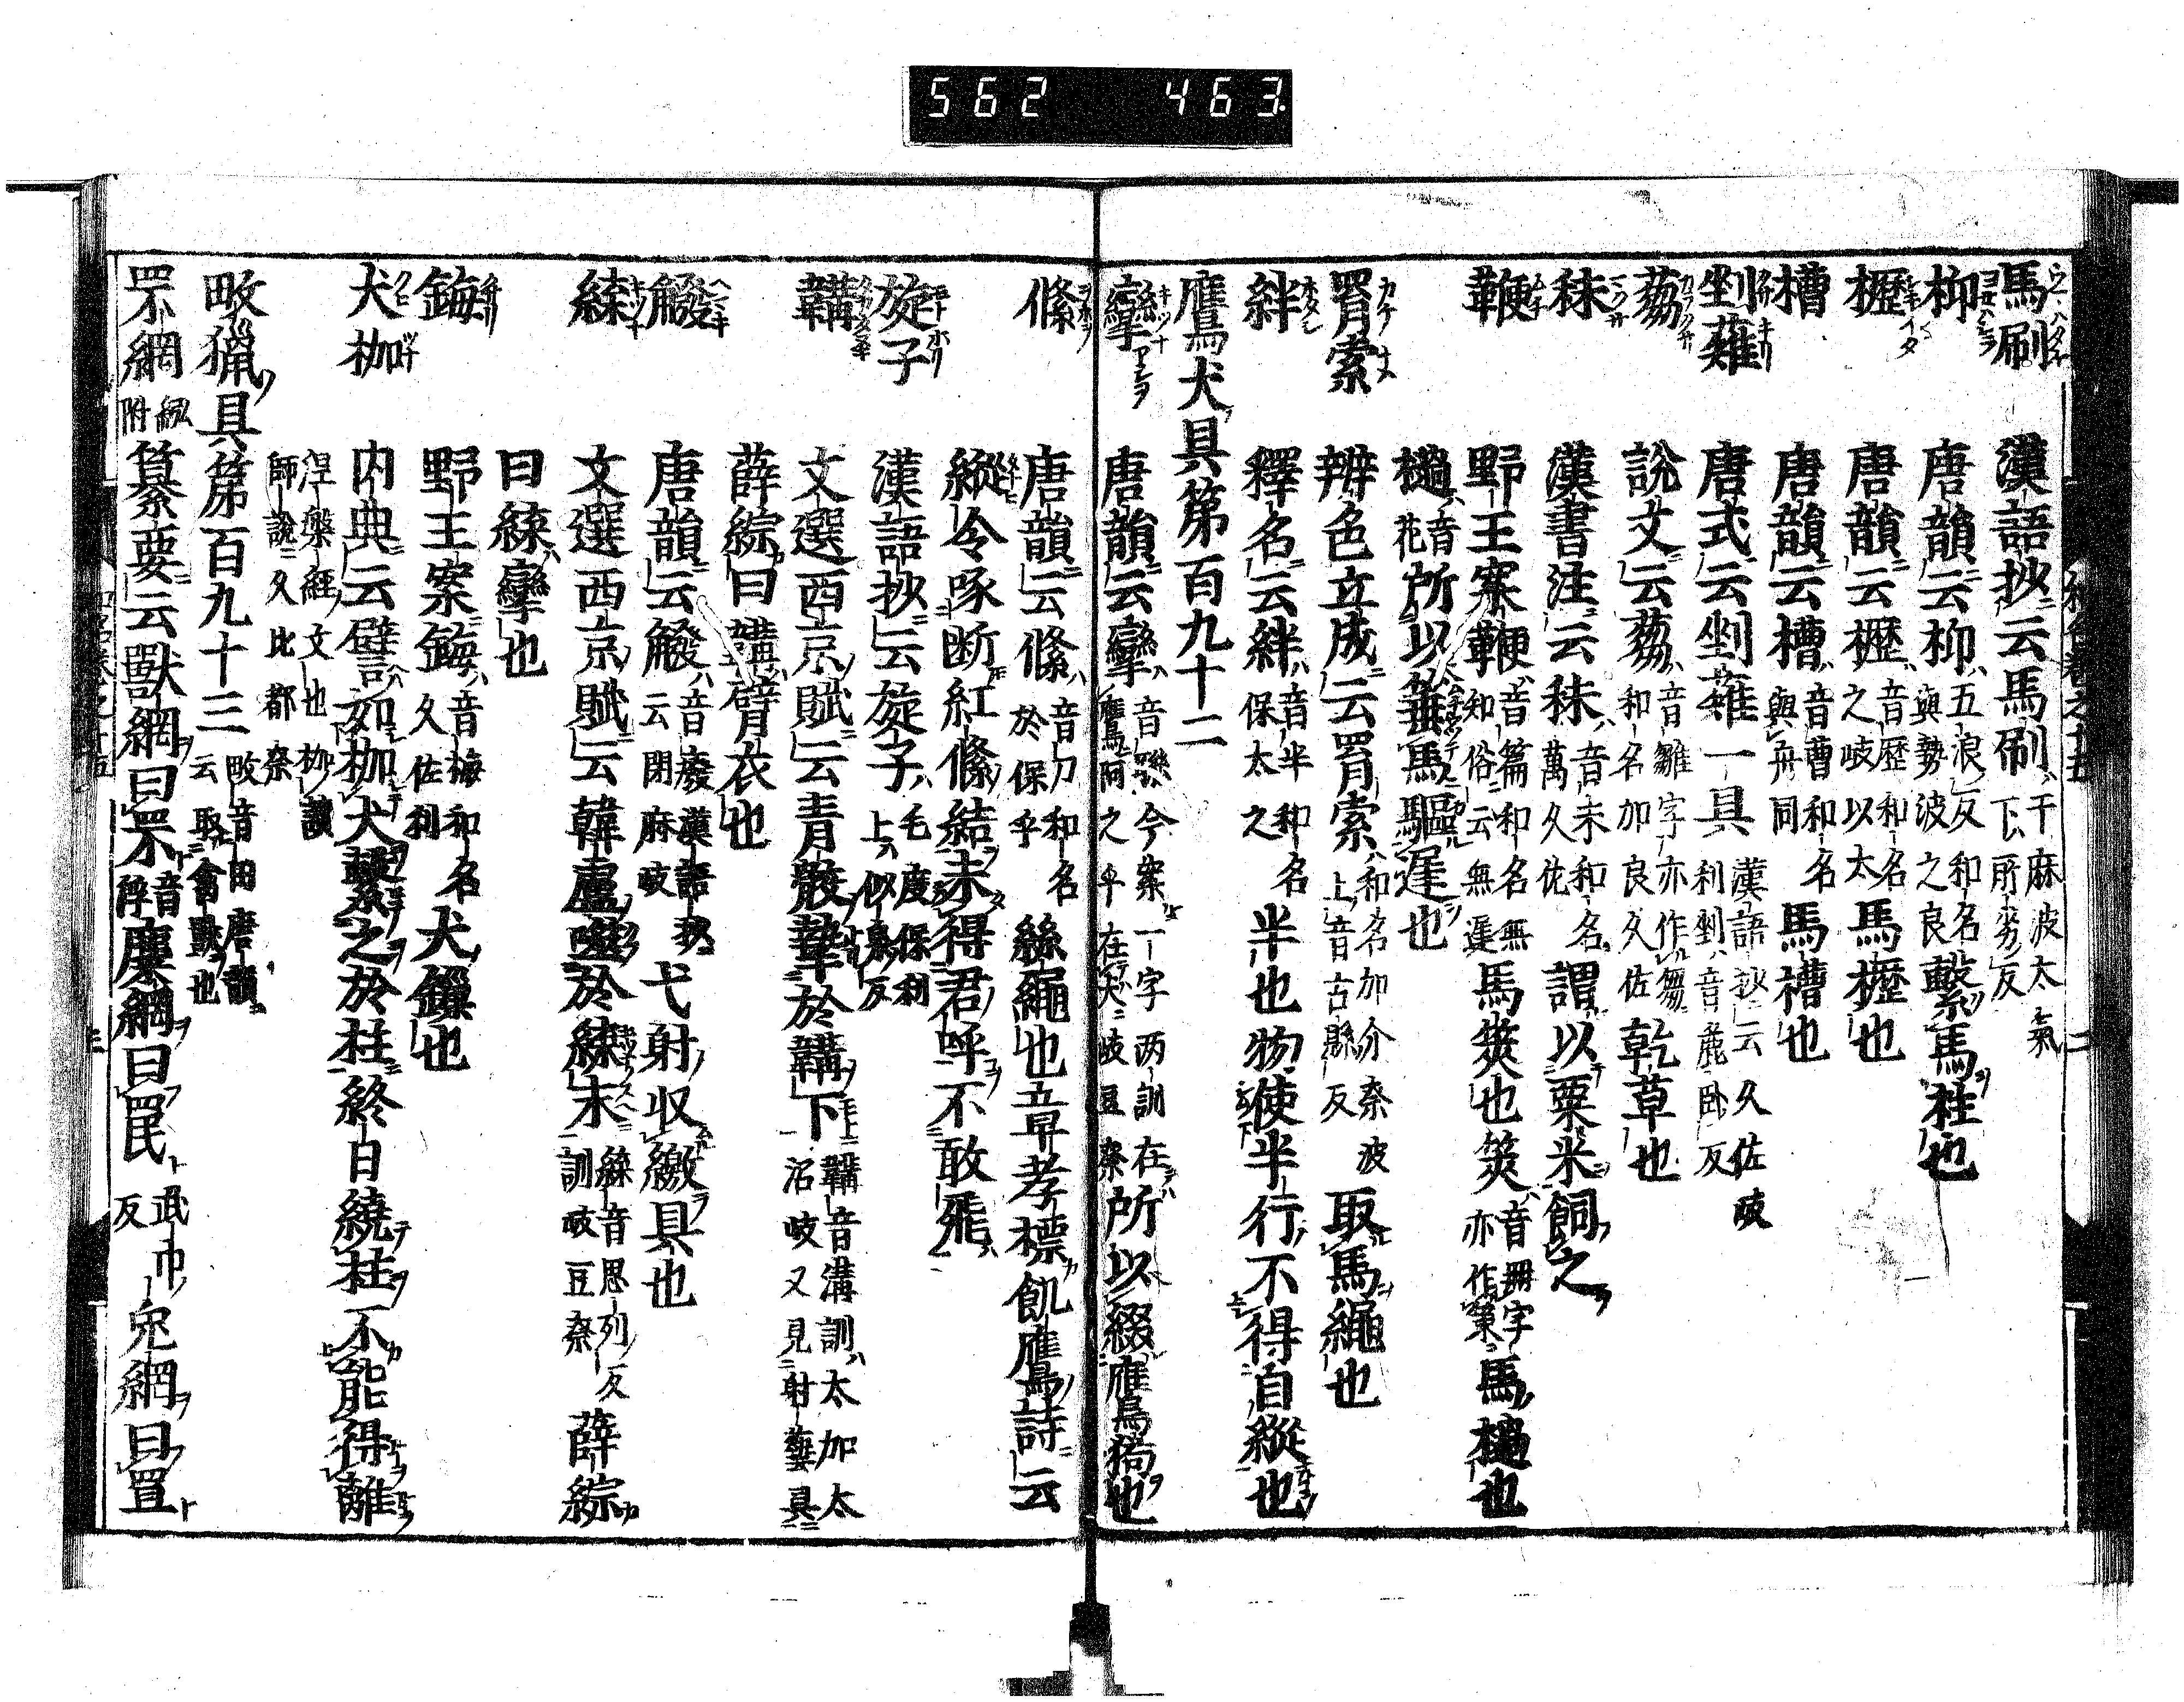 562 463
馬刷 漢語抄云馬刷 于麻波太氣 下所劣反
枊 唐韻云枊 五浪反 和名 與勢波之良 繫馬柱也
櫪 唐韻云櫪 音歴 和名 之岐以太 馬櫪也
槽 唐韻云槽 音曹 和名 與舟同 馬槽也
剉薙 唐式云剉薙一具 漢語抄云久佐岐利 剉音麁臥反
蒭 說文云蒭 音雛 字亦作芻 和名加良久佐 乾草也
秣 漢書注云秣 音末 和名 萬久佐 謂以粟米飼之
鞭 野王案鞭 音篇 和名無知 俗云無遅 馬筴也筴 音冊 字亦作策 馬檛也
檛 音花 所以箠馬驅遅也
罥索 辨色立成云罥索 和名加介奈波 上音古縣反 取馬繩也
絆 釋名云絆 音半 和名 保太之 半也物使半行不得自縱也
鷹犬具第百九十二
攣 唐韻云攣 音戀 今案一字兩訓 在鷹阿之乎 在犬岐豆奈 所以綴鷹狗也
絛 唐韻云絛 音刀 和名 於保乎 絲繩也章孝標飢鷹詩云
縱令啄断紅絛結未得君呼不敢飛
旋子 漢語抄云旋子 毛度保利 上似泉反
韝 文選西京賦云青骹摯於韝下 韝音溝 訓太加太沼岐 又見射藝具
薛綜曰韝臂衣也
觮 唐韻云觮 音癈 漢語抄云閇麻岐 弋射収繳具也
緤 文選西京賦云韓盧噬於緤末 緤音思列反 訓岐豆奈 薛綜
曰緤攣也
鋂 野王案鋂 音梅 和名 久佐利 犬鏁也
犬枷 内典云譬如枷犬繫之於柱終日繞柱不能得離
涅槃經文也 枷讀師說云久比都奈
畋獵具第百九十三 畋音田 唐韻云取禽獸也
罘網 罠附 纂要云獸網曰罘 音浮 麋網曰罠 武巾反 兔網曰罝